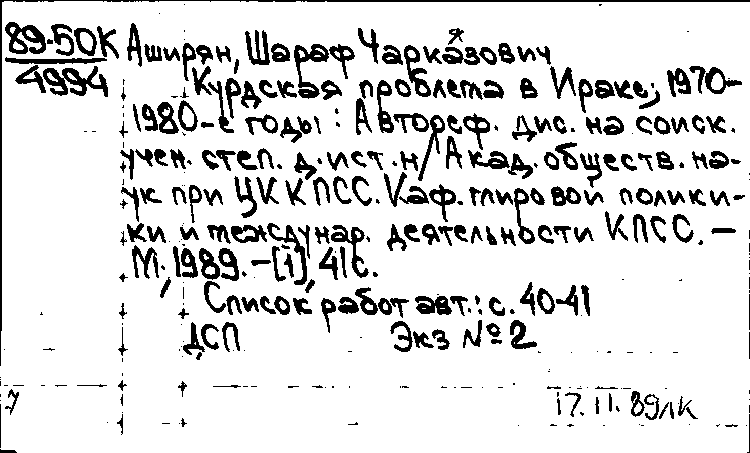 89-50К Аширян, Шараф Чаркázович
4994 Курдская проблема в Ираке, 1970-
1980-е годы : Автореф. дис. на соиск.
учен. степ. д. ист. н/ Акад. обществ. на-
ук при ЦК КПСС. Каф. мировой полики-
ки и междунар. деятельности КПСС. –
М., 1989. – [1], 41 с.
Список работ авт.: с. 40-41
ДСП Экз № 2
7 17.11.89лк